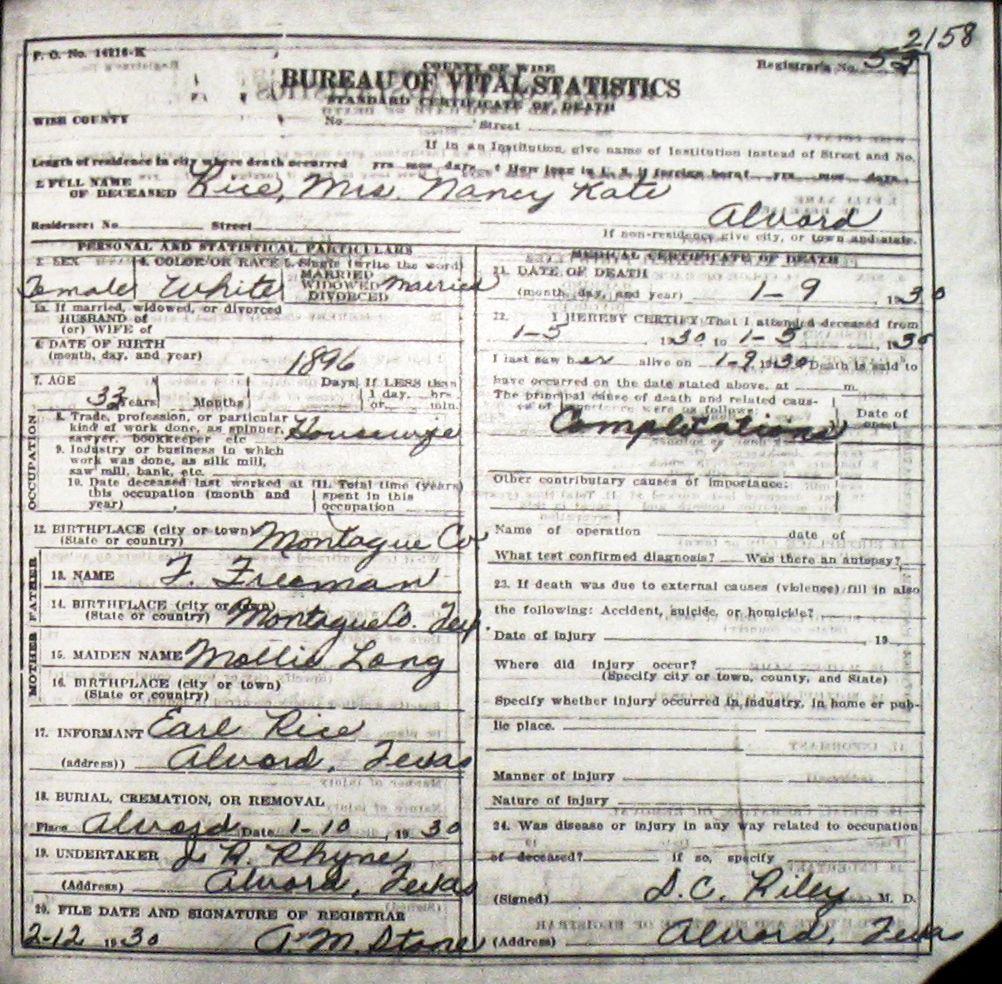 2158
F. O. No. 14216-K
COUNTY OF WISE
Registrar's No. 53
BUREAU OF VITAL STATISTICS
STANDARD CERTIFICATE OF DEATH
WISE COUNTY
No. Street
If in an Institution, give name of Institution instead of Street and No.
Length of residence in city where death occurred yrs. mos. days. How long in U. S. if foreign born? yrs. mos. days.
2. FULL NAME OF DECEASED Rice, Mrs. Nancy Kate
Residence: No Street Alvord
If non-residence give city, or town and state.
PERSONAL AND STATISTICAL PARTICULARS
3. SEX 4. COLOR OR RACE 5. Single (write the word)
MARRIED
WIDOWED
DIVORCED
Female White Married
5a. If married, widowed, or divorced
HUSBAND OF
(or) WIFE of
6. DATE OF BIRTH
(month, day, and year) 1896
7. AGE Days If LESS than
1 day, hrs
33 Years Months or min.
OCCUPATION
8. Trade, profession, or particular
kind of work done, as spinner,
sawyer, bookkeeper etc Housewife
9. Industry or business in which
work was done, as silk mill,
saw mill, bank, etc.
10. Date deceased last worked at
this occupation (month and
year)
11. Total time (years)
spent in this
occupation
12. BIRTHPLACE (city or town)
(State or country) Montague Co
FATHER
13. NAME F. Freeman
14. BIRTHPLACE (city or town)
(State or country) Montague Co. Tex.
MOTHER
15. MAIDEN NAME Mollie Long
16. BIRTHPLACE (city or town)
(State or country)
17. INFORMANT Earl Rice
(address)) Alvord, Texas
18. BURIAL, CREMATION, OR REMOVAL
Place Alvord Date 1-10, 1930
19. UNDERTAKER J. R. Rhyne
(Address) Alvord, Texas
20. FILE DATE AND SIGNATURE OF REGISTRAR
2-12 1930 A. M. Stone
MEDICAL CERTIFICATE OF DEATH
21. DATE OF DEATH
(month, day, and year) 1-9, 1930
22. I HEREBY CERTIFY That I attended deceased from
1-5, 1930 to 1-5, 1930
I last saw her alive on 1-9, 1930 Death is said to
have occurred on the date stated above, at m.
The principal cause of death and related causes
of importance were as follows: Date of
onset
Complications
Other contributory causes of importance:
Name of operation date of
What test confirmed diagnosis? Was there an autopsy?
23. If death was due to external causes (violence) fill in also
the following: Accident, suicide, or homicide?
Date of injury 19
Where did injury occur?
(Specify city or town, county, and State)
Specify whether injury occurred in industry, in home or pub-
lic place.
Manner of injury
Nature of injury
24. Was disease or injury in any way related to occupation
of deceased? if so, specify
(Signed) D. C. Riley M. D.
(Address) Alvord, Texas